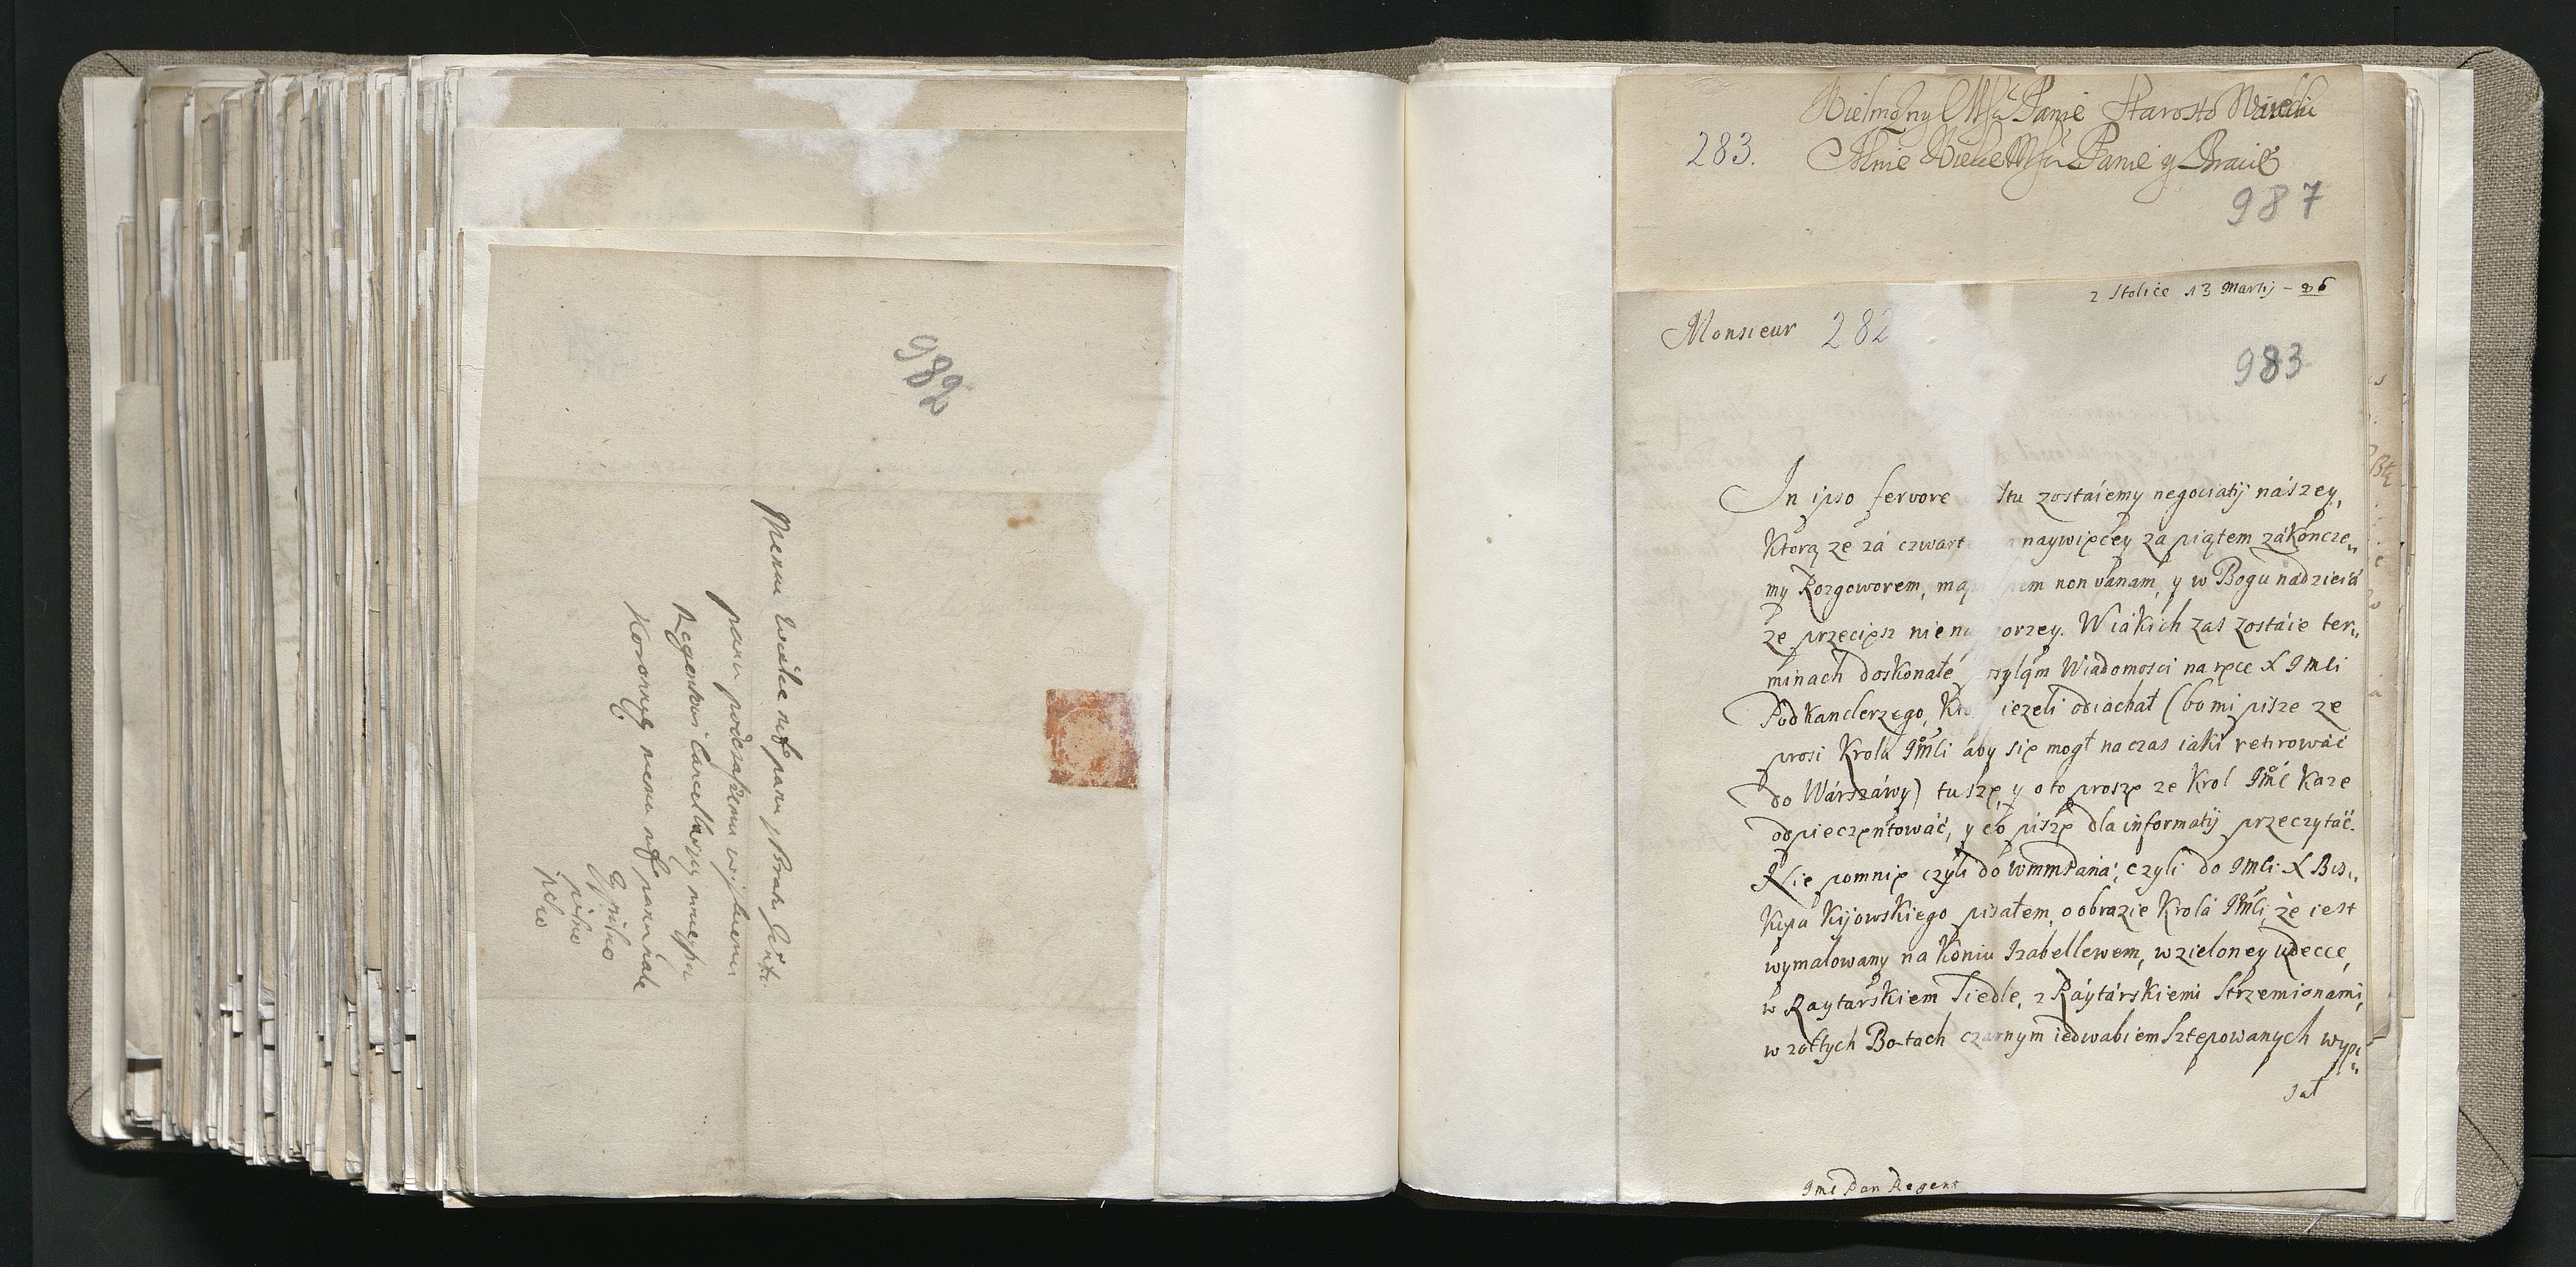 982
Memu Wielce
panu podczaszemu
Regentowi Cancellaryey
Koronney memu
Cypilno
pilno
pilno
283.
Wielmożny Panie Starosto
Mnie Panie y Bracie
987
z Stolice 13 Martij - 86
Monsieur 282
983
In ipso fervore stu zostáiemy negociatij nászey,
Ktorą ze zá czwart naywięcey za piątem zákoncze„
my Rozgoworem, mą spem non vanam, y w Bogu nadzieiá
ze przeciesz nie na gorzey. W iákich zas zostáie ter„
minach doskonałe syłąm Wiádomosci na ręce X Imci
Podkanclerzego, Kto iezeli odiáchał (bo mi pisze ze
prosi Krolá JKMci aby się mogł na czas iáki retirowáć
do Wárszáwy) tuszę, y o to proszę ze Krol Jmć Kaze
odpieczętowáć, y co piszę dla informatij przeczytáć.
Nie pomnię czyli do WmmPaná, czyli do Imci X Bis„
Kupa Kijowskiego pisałem, o obrazie Krolá JKMci, że iest
wymalowany na Koniu Izabellowem, w zieloney udecce,
w Raytarskiem Siedle, z Ráytárskiemi Strzemionami,
w zołtych Botach czarnym iedwabiem sztepowanych wypi„
sał
Jmć Pan Regent